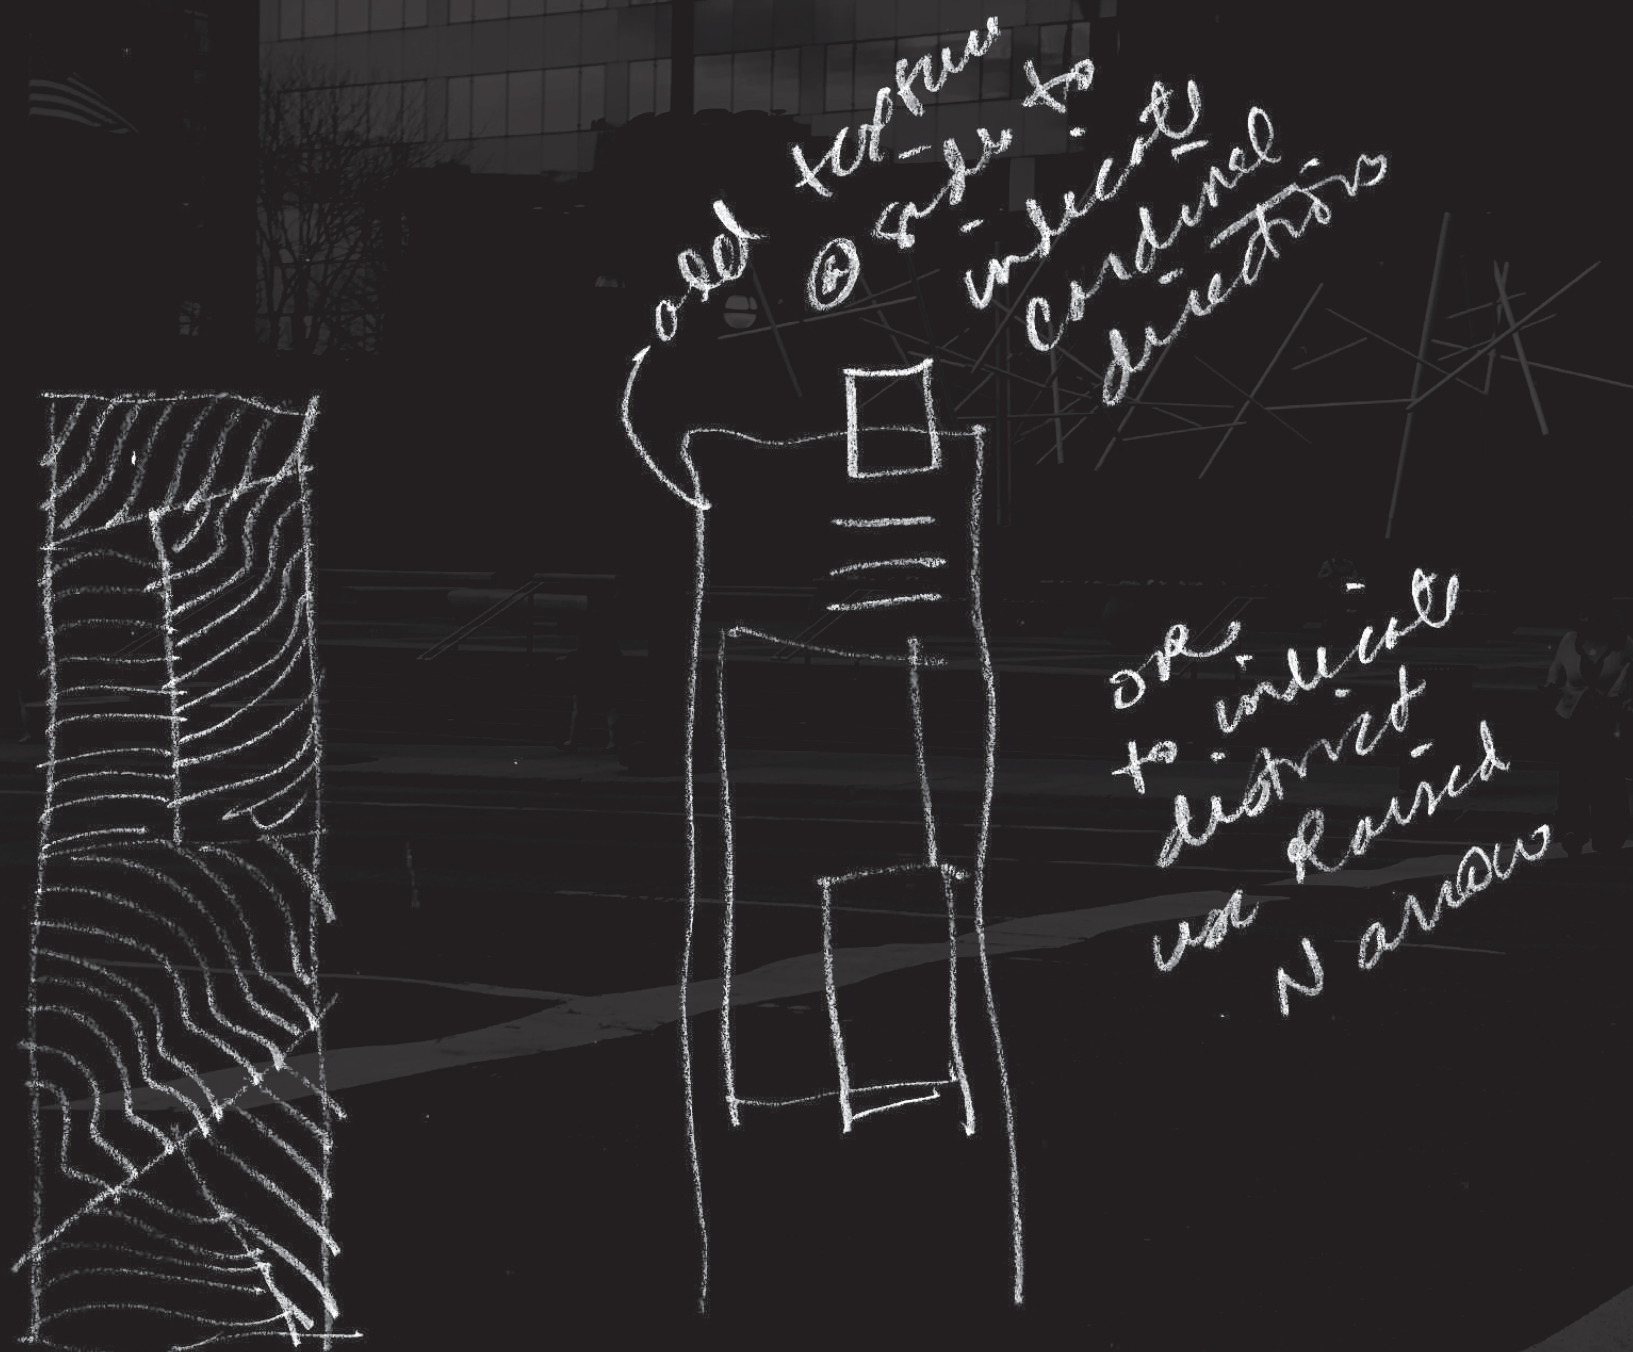 add texture
@ side to
indicate
cardinal
directions
or
to indicate
district
use Raised
N arrow